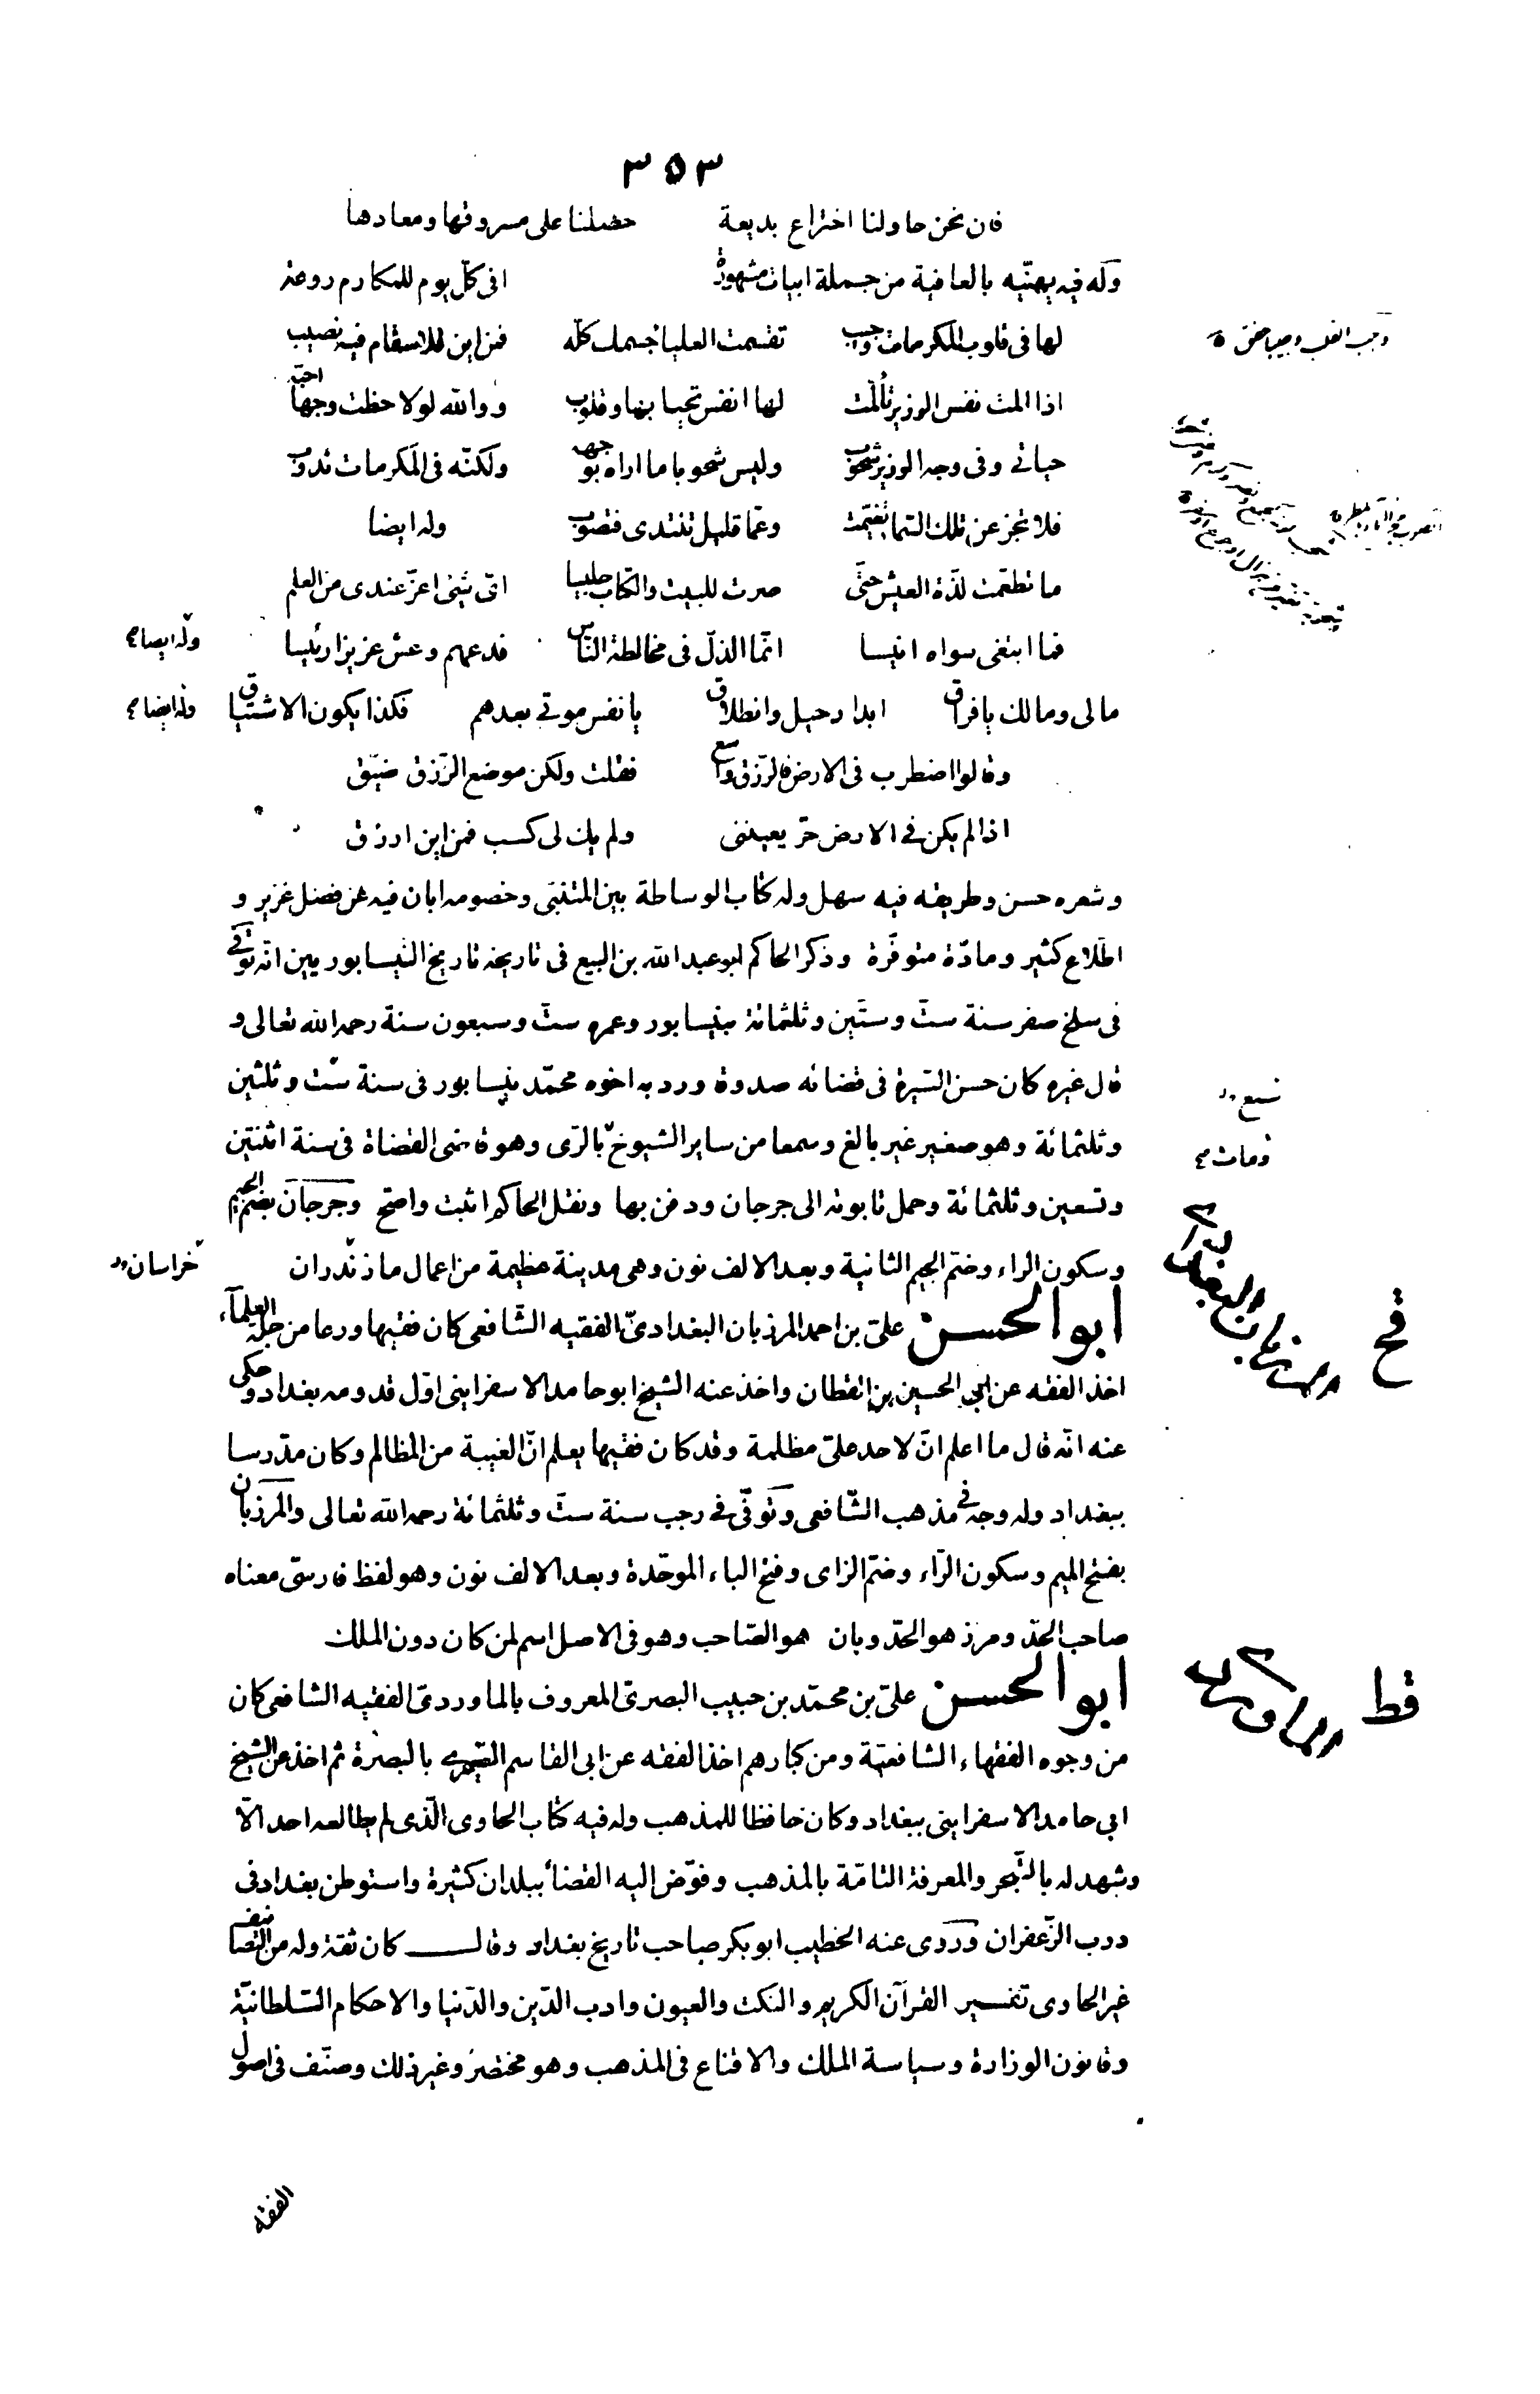 ٣٥٣
فان نحن حاولنا اختراع بديعة حصلنا على مسروقها ومعادها
وله فيه يهنّيه بالعافية من جملة ابيات مشهورة افى كلّ يوم للمكارم روعة
لها فى قلوب المكرمات وجيب تقسمت العليا جسمك كلّه فمن اين للاسقام فيه نصيب
وجب القلب وجيبا خفق
اذا المت نفس الوزير تألمت لها انفس تحيا بها وقلوب ووالله لولاحظت وجها احبّه
حياتى وفى وجه الوزير شحوب وليس شحوبا ما اراه بوجهه ولكنّه فى المكرمات ندوب
فلا تجزعن تلك السما تغيّمت وعمّا قليل تنتدى فتصوب وله ايضا
ما تطعّمت لذّة العيش حتّى صرت للبيت والكتاب جليسا اىّ شيئ اعزّ عندى من العلم
فما ابتغى سواه انيسا انّما الذلّ فى مخالطة النّاس فدعهم وعش عزيزا رئيسا
وله ايضا
مالى ومالك يا فراق ابدا رحيل وانطلاق يا نفس موتى بعدهم فكذا يكون الاشتياق
وله ايضا
وقالوا اضطرب فى الارض فالرّزق واسع فقلت ولكن موضع الرّزق ضيّق
اذا لم يكن فى الارض حرّ يعيننى ولم يك لى كسب فمن اين ارزق
وشعره حسن وطريقه فيه سهل وله كتاب الوساطة بين المتنبّى وخصومه ابان فيه عن فضل غزير و
اطّلاع كثير ومادّة متوفّرة وذكر الحاكم ابو عبد الله بن البيع فى تاريخه تاريخ النّيسابوريين انّه توفّى
فى سلخ صفر سنة ستّ وستّين وثلثمائة بنيسابور وعمره ستّ وسبعون سنة رحمه الله تعالى و
قال غيره كان حسن السّيرة فى قضائه صدوقا ورد به اخوه محمّد نيسابور فى سنة ستّ وثلثين
سبع
وثلثمائة وهو صغير غير بالغ وسمعا من ساير الشيوخ بالرّى وهو قاضى القضاة فى سنة اثنتين
ومات
وتسعين وثلثمائة وحمل تابوته الى جرجان ودفن بها ونقل الحاكم اثبت واصحّ وجرجان بضمّ الجيم
وسكون الراء وضمّ الجيم الثانية وبعد الالف نون وهى مدينة عظيمة من اعمال مازندران
خراسان
ابو الحسن علىّ بن احمد المرزبان البغدادىّ الفقيه الشّافعى كان فقيها ورعا من جلّة العلماء
قح
اخذ الفقه عن ابى الحسين بن القطان واخذ عنه الشيخ ابو حامد الاسفراينى اوّل قدومه بغداد وحكى
عنه انّه قال ما اعلم انّ لاحد علىّ مظلمة وقد كان فقيها يعلم انّ الغيبة من المظالم وكان مدّرسا
ببغداد وله وجه فى مذهب الشّافعى وتوفّى فى رجب سنة ستّ وثلثمائة رحمه الله تعالى والمرزبان
بفتح الميم وسكون الرّاء وضمّ الزاى وفتح الباء الموحّدة وبعد الالف نون وهو لفظ فارسىّ معناه
صاحب الحدّ ومرز هو الحدّ وبان هو الصّاحب وهو فى الاصل اسم لمن كان دون الملك
ابو الحسن علىّ بن محمّد بن حبيب البصرىّ المعروف بالماوردىّ الفقيه الشافعى كان
الماوردى
قط
من وجوه الفقهاء الشافعيّة ومن كبارهم اخذ الفقه عن ابى القاسم الصّيمرى بالبصرة ثم اخذ عن الشيخ
ابى حامد الاسفراينى ببغداد وكان حافظا للمذهب وله فيه كتاب الحاوى الّذى لم يطالعه احد الّا
وشهد له بالتّبحر والمعرفة التامّة بالمذهب وفوّض اليه القضاء ببلدان كثيرة واستوطن بغداد فى
درب الزّعفران وروى عنه الخطيب ابو بكر صاحب تاريخ بغداد وقال كان ثقة وله من التّصانيف
غير الحاوى تفسير القرآن الكريم والنكت والعيون وادب الدّين والدّنيا والاحكام السّلطانيّة
وقانون الوزارة وسياسة الملك والاقناع فى المذهب وهو مختصر وغير ذلك وصنّف فى اصول
الفقه